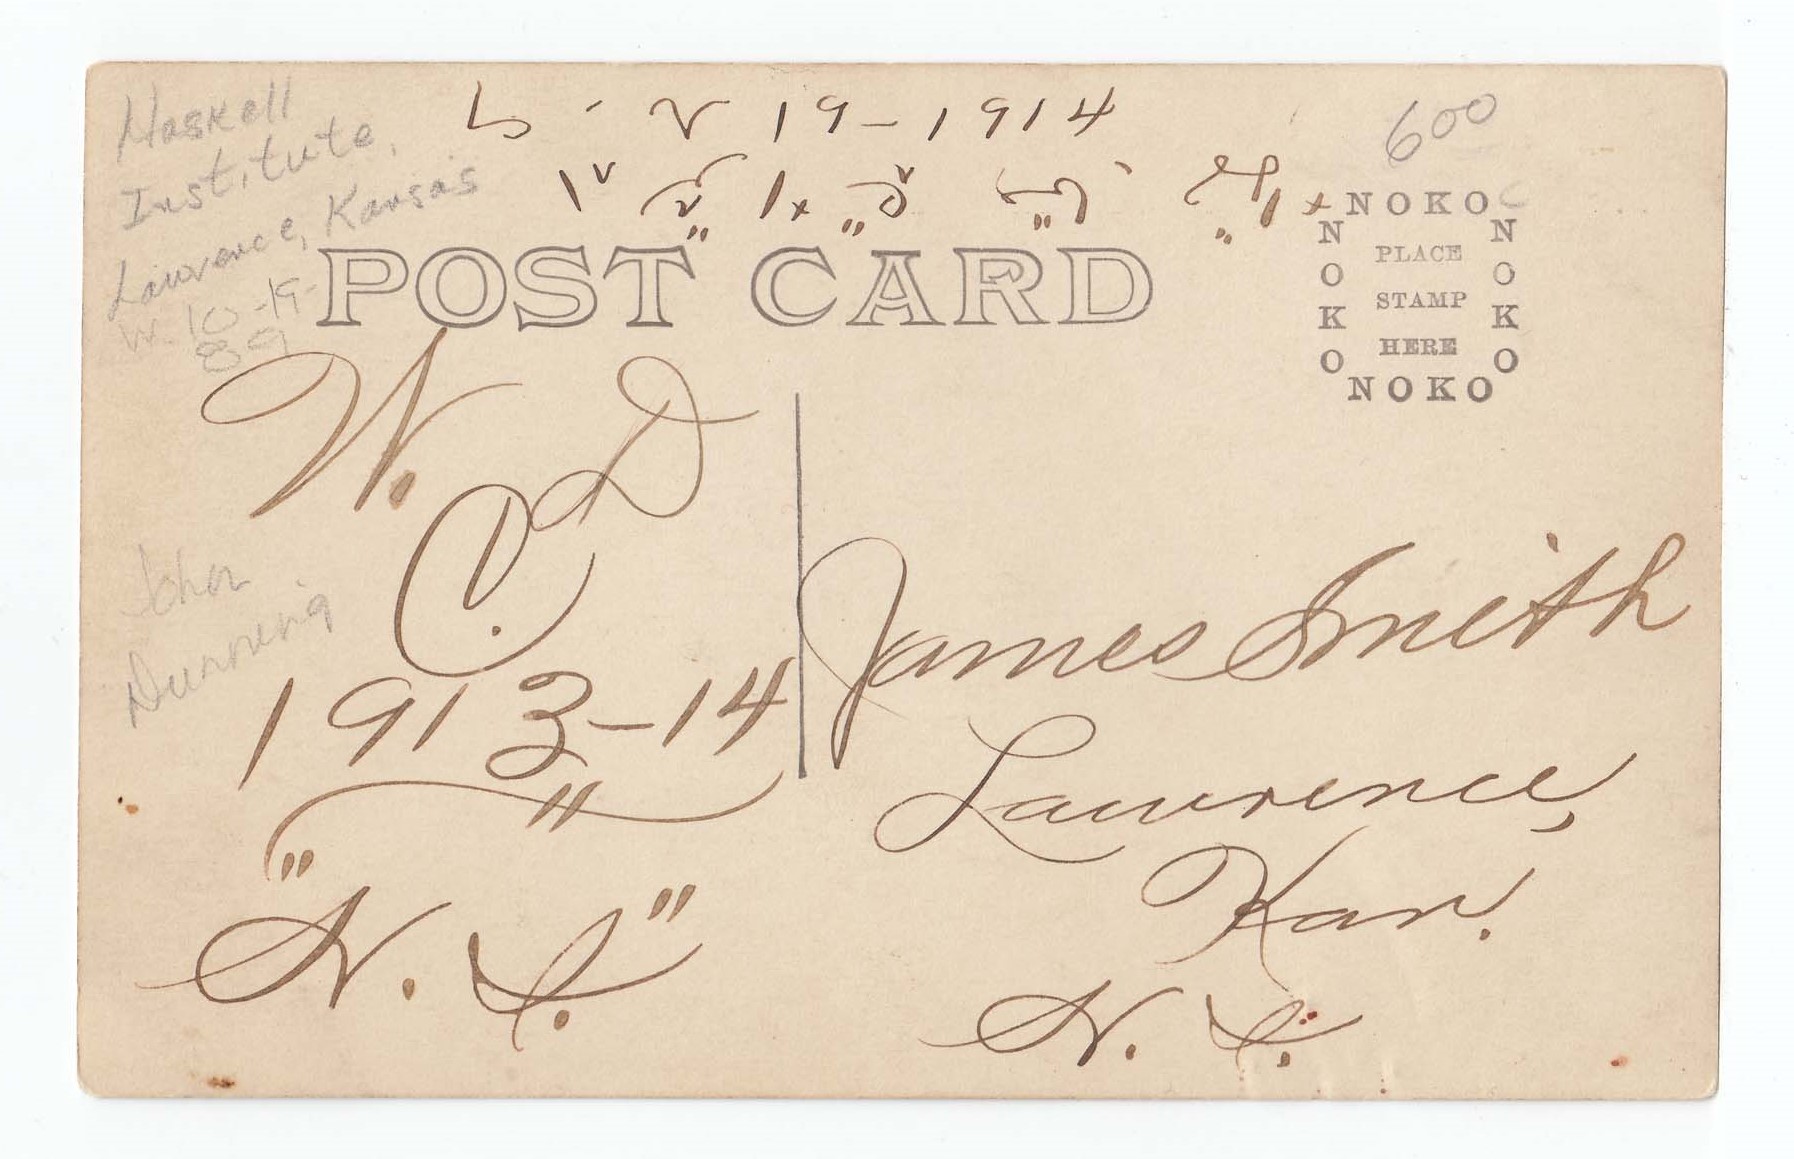 Haskell
Institute,
Lawrence, Kansas
W. 10-19-
89
19-1914
600
NOKO
NOKO
NOKO
NOKO
PLACE
STAMP
HERE
POST CARD
W. D
C.
1913-14
"H. I."
John
James Smith
Lawrence,
Kan.
H. I.